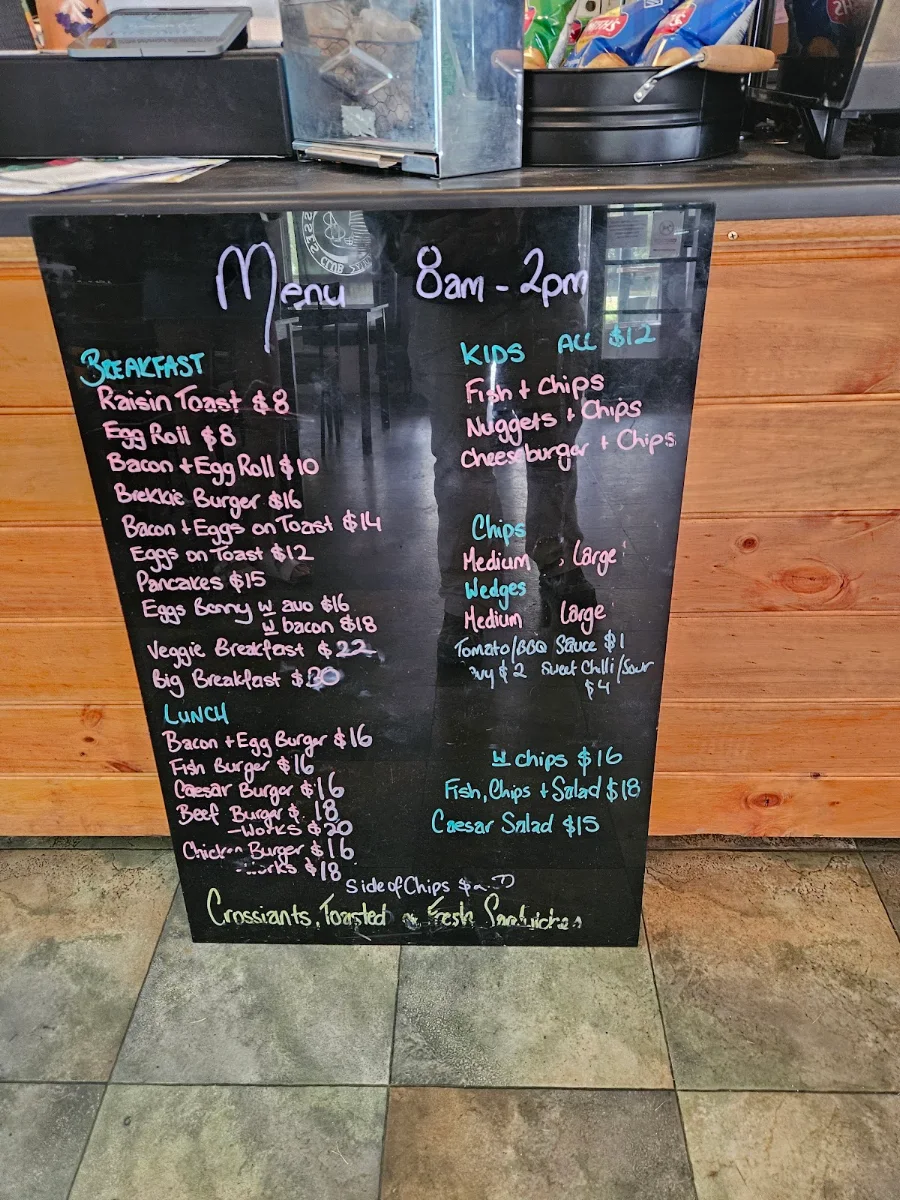 Menu 8am - 2pm
BREAKFAST
Raisin Toast $8
Egg Roll $8
Bacon + Egg Roll $10
Brekkie Burger $16
Bacon + Eggs on Toast $14
Eggs on Toast $12
Pancakes $15
Eggs Benny w avo $16
w bacon $18
Veggie Breakfast $22
Big Breakfast $30
LUNCH
Bacon + Egg Burger $16
Fish Burger $16
Caesar Burger $16
Beef Burger $18
- Works $20
Chicken Burger $16
- Works $18
KIDS ALL $12
Fish + Chips
Nuggets + Chips
Cheeseburger + Chips
Chips
Medium, Large
Wedges
Medium Large
Tomato/BBQ Sauce $1
$2 Sweet Chilli/Sour
$4
w chips $16
Fish, Chips + Salad $18
Caesar Salad $15
Side of Chips $
Crossiants, Toasted or Fresh Sandwiches